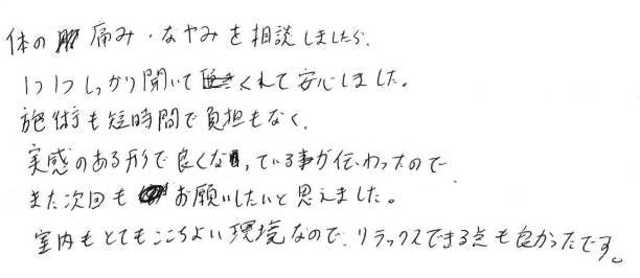 体の痛み・なやみを相談しましたら、
1つ1つしっかり聞いてくれて安心しました。
施術も短時間で負担もなく、
実感のある形で良くなっている事が伝わったので
また次回もお願いしたいと思えました。
室内もとてもここちよい環境なので、リラックスできる点も良かったです。